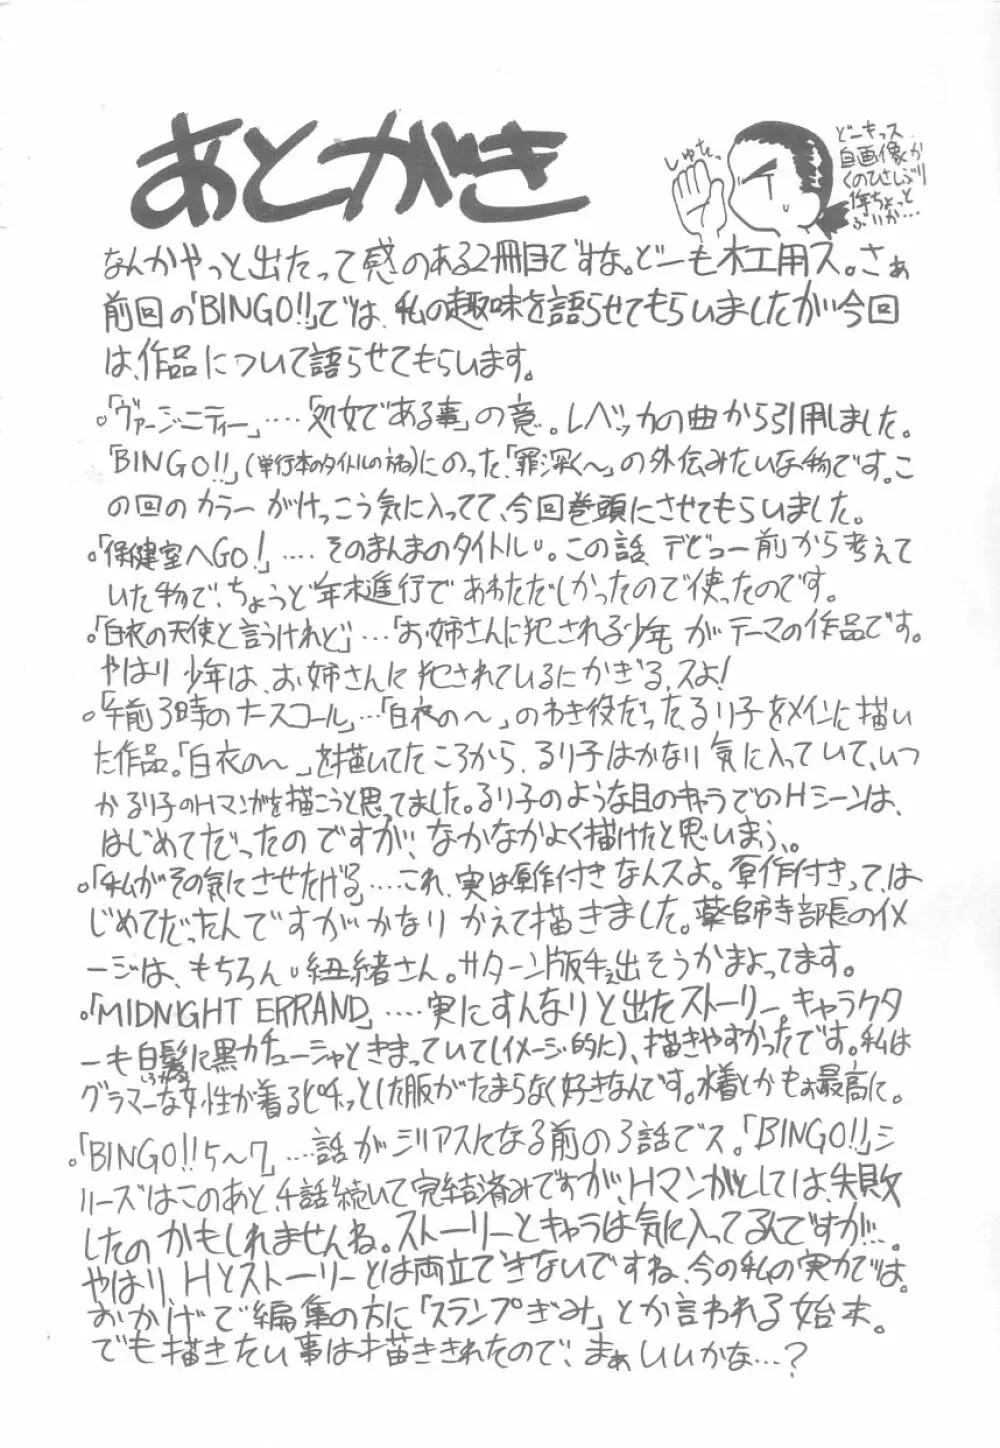 あとがき
しゅたっ
どーもっス
自画像か
くのひさしぶり
なんかやっと出たって感のある2冊目ですな。どーも木工用ス。さぁ
前回の「BINGO!!」では、私の趣味を語らせてもらいましたが今回
は、作品について語らせてもらいます。
。「ヴァージニティー」‥‥「処女である事」の意。レベッカの曲から引用しました。
「BINGO!!」(単行本のタイトルの方ね)にのった「罪深く〜」の外伝みたいな物です。こ
の回のカラーがけっこう気に入ってて、今回巻頭にさせてもらいました。
。「保健室へGO!」‥‥そのまんまのタイトル。この話、デビュー前から考えて
いた物で、ちょうど年末進行であわただしかったので使ったのです。
。「白衣の天使と言うけれど」‥‥「お姉さんに犯される少年」がテーマの作品です。
やはり少年は、お姉さんに犯されているにかぎる、スよ!
。「午前3時のナースコール」‥‥「白衣の〜」のわき役だった、るり子をメインに描い
た作品。「白衣の〜」を描いてたころから、るり子はかなり気に入っていて、いつ
かるり子のHマンガを描こうと思ってました。るり子のような目のキャラでのHシーンは、
はじめてだったのですが、なかなかよく描けたと思いまふ。
。「私がその気にさせたげる」‥‥これ、実は原作付きなんスよ。原作付きっては
じめてだったんですがかなりかえて描きました。薬師寺部長のイメ
ージは、もちろん紐緒さん。サターン版手ぇ出そうかまよってます。
。「MIDNIGHT ERRAND」‥‥実にすんなりと出たストーリー。キャラクタ
ーも白髪に黒カチューシャときまっていて(イメージ的に)、描きやすかったです。私は
グラマーな女性が着るピチッとした服がたまらなく好きなんです。水着とかもぉ最高に。
。「BINGO!!5〜7」‥‥話がシリアスになる前の3話でス。「BINGO!!」シ
リーズはこのあと、4話続いて完結済みですが、Hマンガとしては、失敗
したのかもしれませんね。ストーリーとキャラは気に入ってるんですが…。
やはり、Hとストーリーとは両立できないですね、今の私の実力では。
おかげで編集の方に「スランプぎみ」とか言われる始末。
でも描きたい事は描ききれたので、まぁいいかな…?